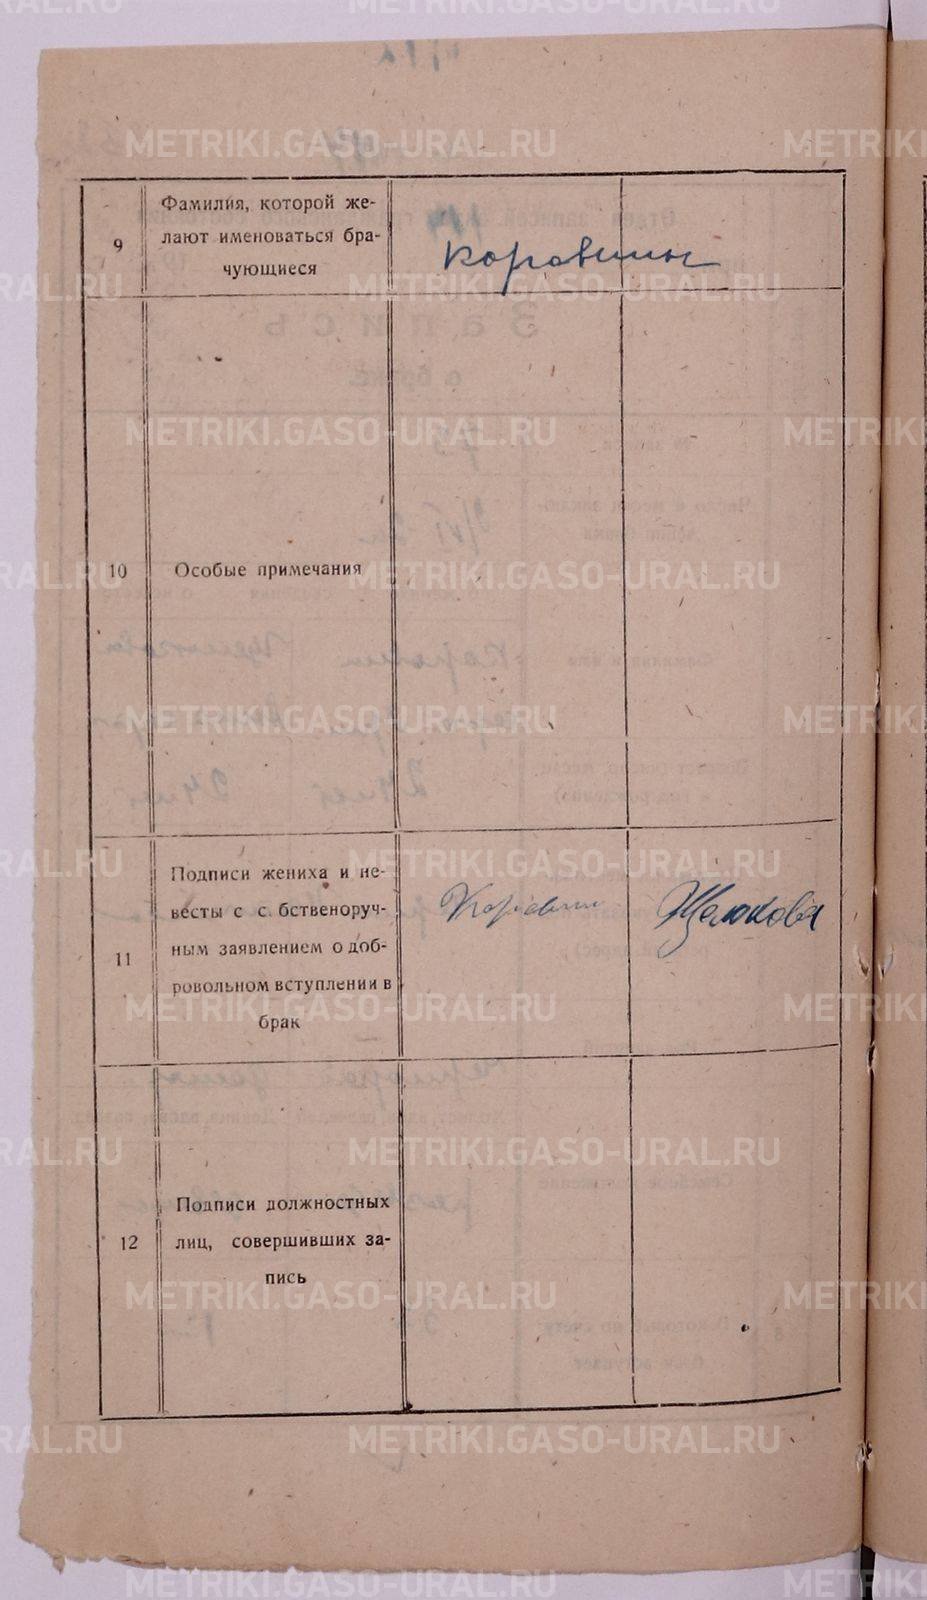 METRIKI.GASO-URAL.RU
9
Фамилия, которой же-
лают именоваться бра-
чующиеся
Коровины
10
Особые примечания
11
Подписи жениха и не-
весты с с. бственоруч-
ным заявлением о доб-
ровольном вступлении в
брак
Коровин
Щелокова
12
Подписи должностных
лиц, совершивших за-
пись